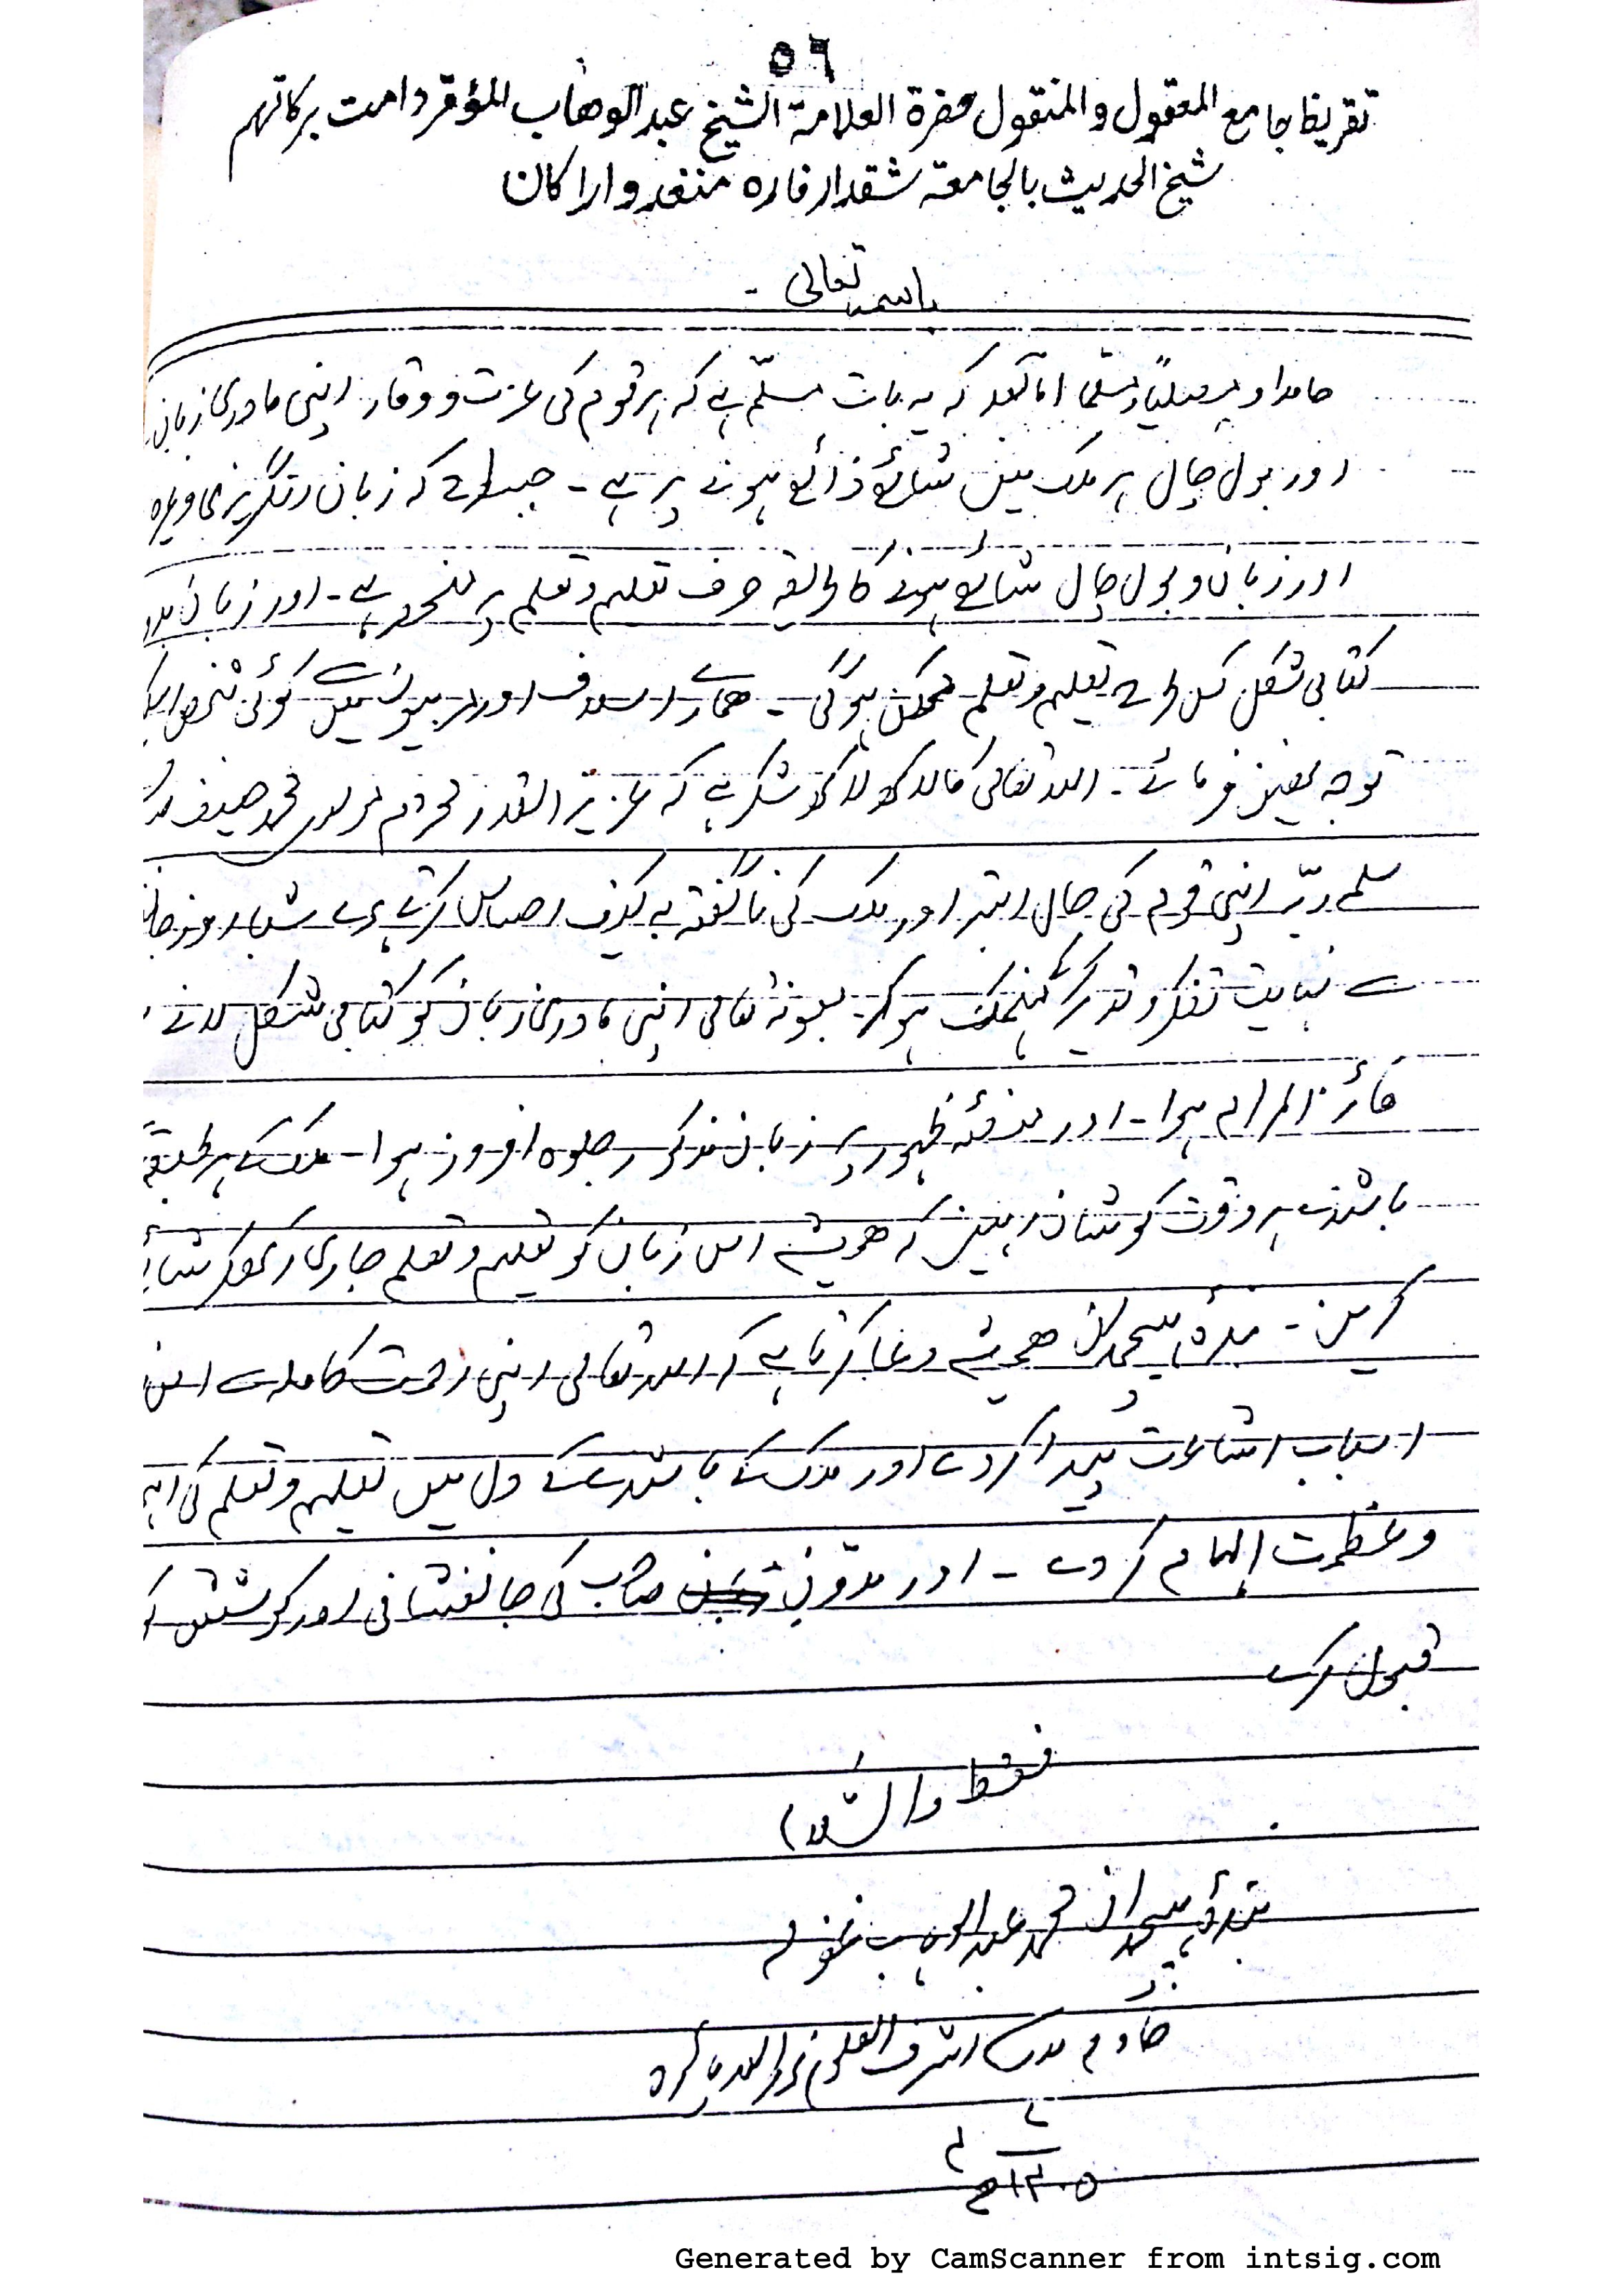 ٥٦
تقريظ جامع المعقول والمنقول حضرة العلامة الشيخ عبد الوهاب المؤقر دامت بركاتهم
شيخ الحديث بالجامعة شقدار فاره منغدو اراكان
باسمہ تعالی -
حامدا و مصلیاً و مسلّما اما بعد کہ یہ بات مسلّم ہے کہ ہر قوم کی عزت و وقار اپنی مادری زبان
اور بول چال ہر ملک میں شائع ذائع ہونے پر ہے - جیسا کہ زبان انگریزی وغیرہ
اور زبان و بول چال شائع ہونے کا طریقہ صرف تعلیم و تعلم پر منحصر ہے - اور زبان
کتابی شکل کس طرح تعلیم و تعلم ممکن ہوگی - ہمارے اسلاف اور میں سے کوئی شخص
توجہ نہیں فرمائے - اللہ تعالی کا لاکھ لاکھ شکر ہے کہ عزیز القدر محترم مولوی محمد حنیف
سلمہ ربّہ اپنی قوم کی حال ابتر اور ملک کی ناگفتہ بہ احساس کرتے ہوئے
سے نہایت تفکر و تدبر منہمک ہوکر بعونہ تعالی اپنی مادری زبان کو کتابی شکل لانے
فائز المرام ہوا - اور منصّہ ظہور پر زبان مذکور جلوہ افروز ہوا - ملک کے ہر طبقہ
باشندے ہر وقت کوشاں رہیں کہ ہمیشہ اس زبان کو تعلیم و تعلم جاری رکھکر شائع
کریں - بندہ ہیچمدان ہمیشہ دعا کرتا ہے کہ اللہ تعالی اپنی رحمت کاملہ سے اس
اسباب اشاعت پیدا کردے اور ملک کے باشندے کے دل میں تعلیم و تعلم کی
و عظمت الہام کر دے - اور صاحب کی جانفشانی اور کوشش کو
قبول کرے
فقط والسّلام
بندۂ ہیچمدان محمد عبد الوہاب غفر لہ
خادم مدرسہ اشرف العلوم
١٤٠٥ھ
Generated by CamScanner from intsig.com